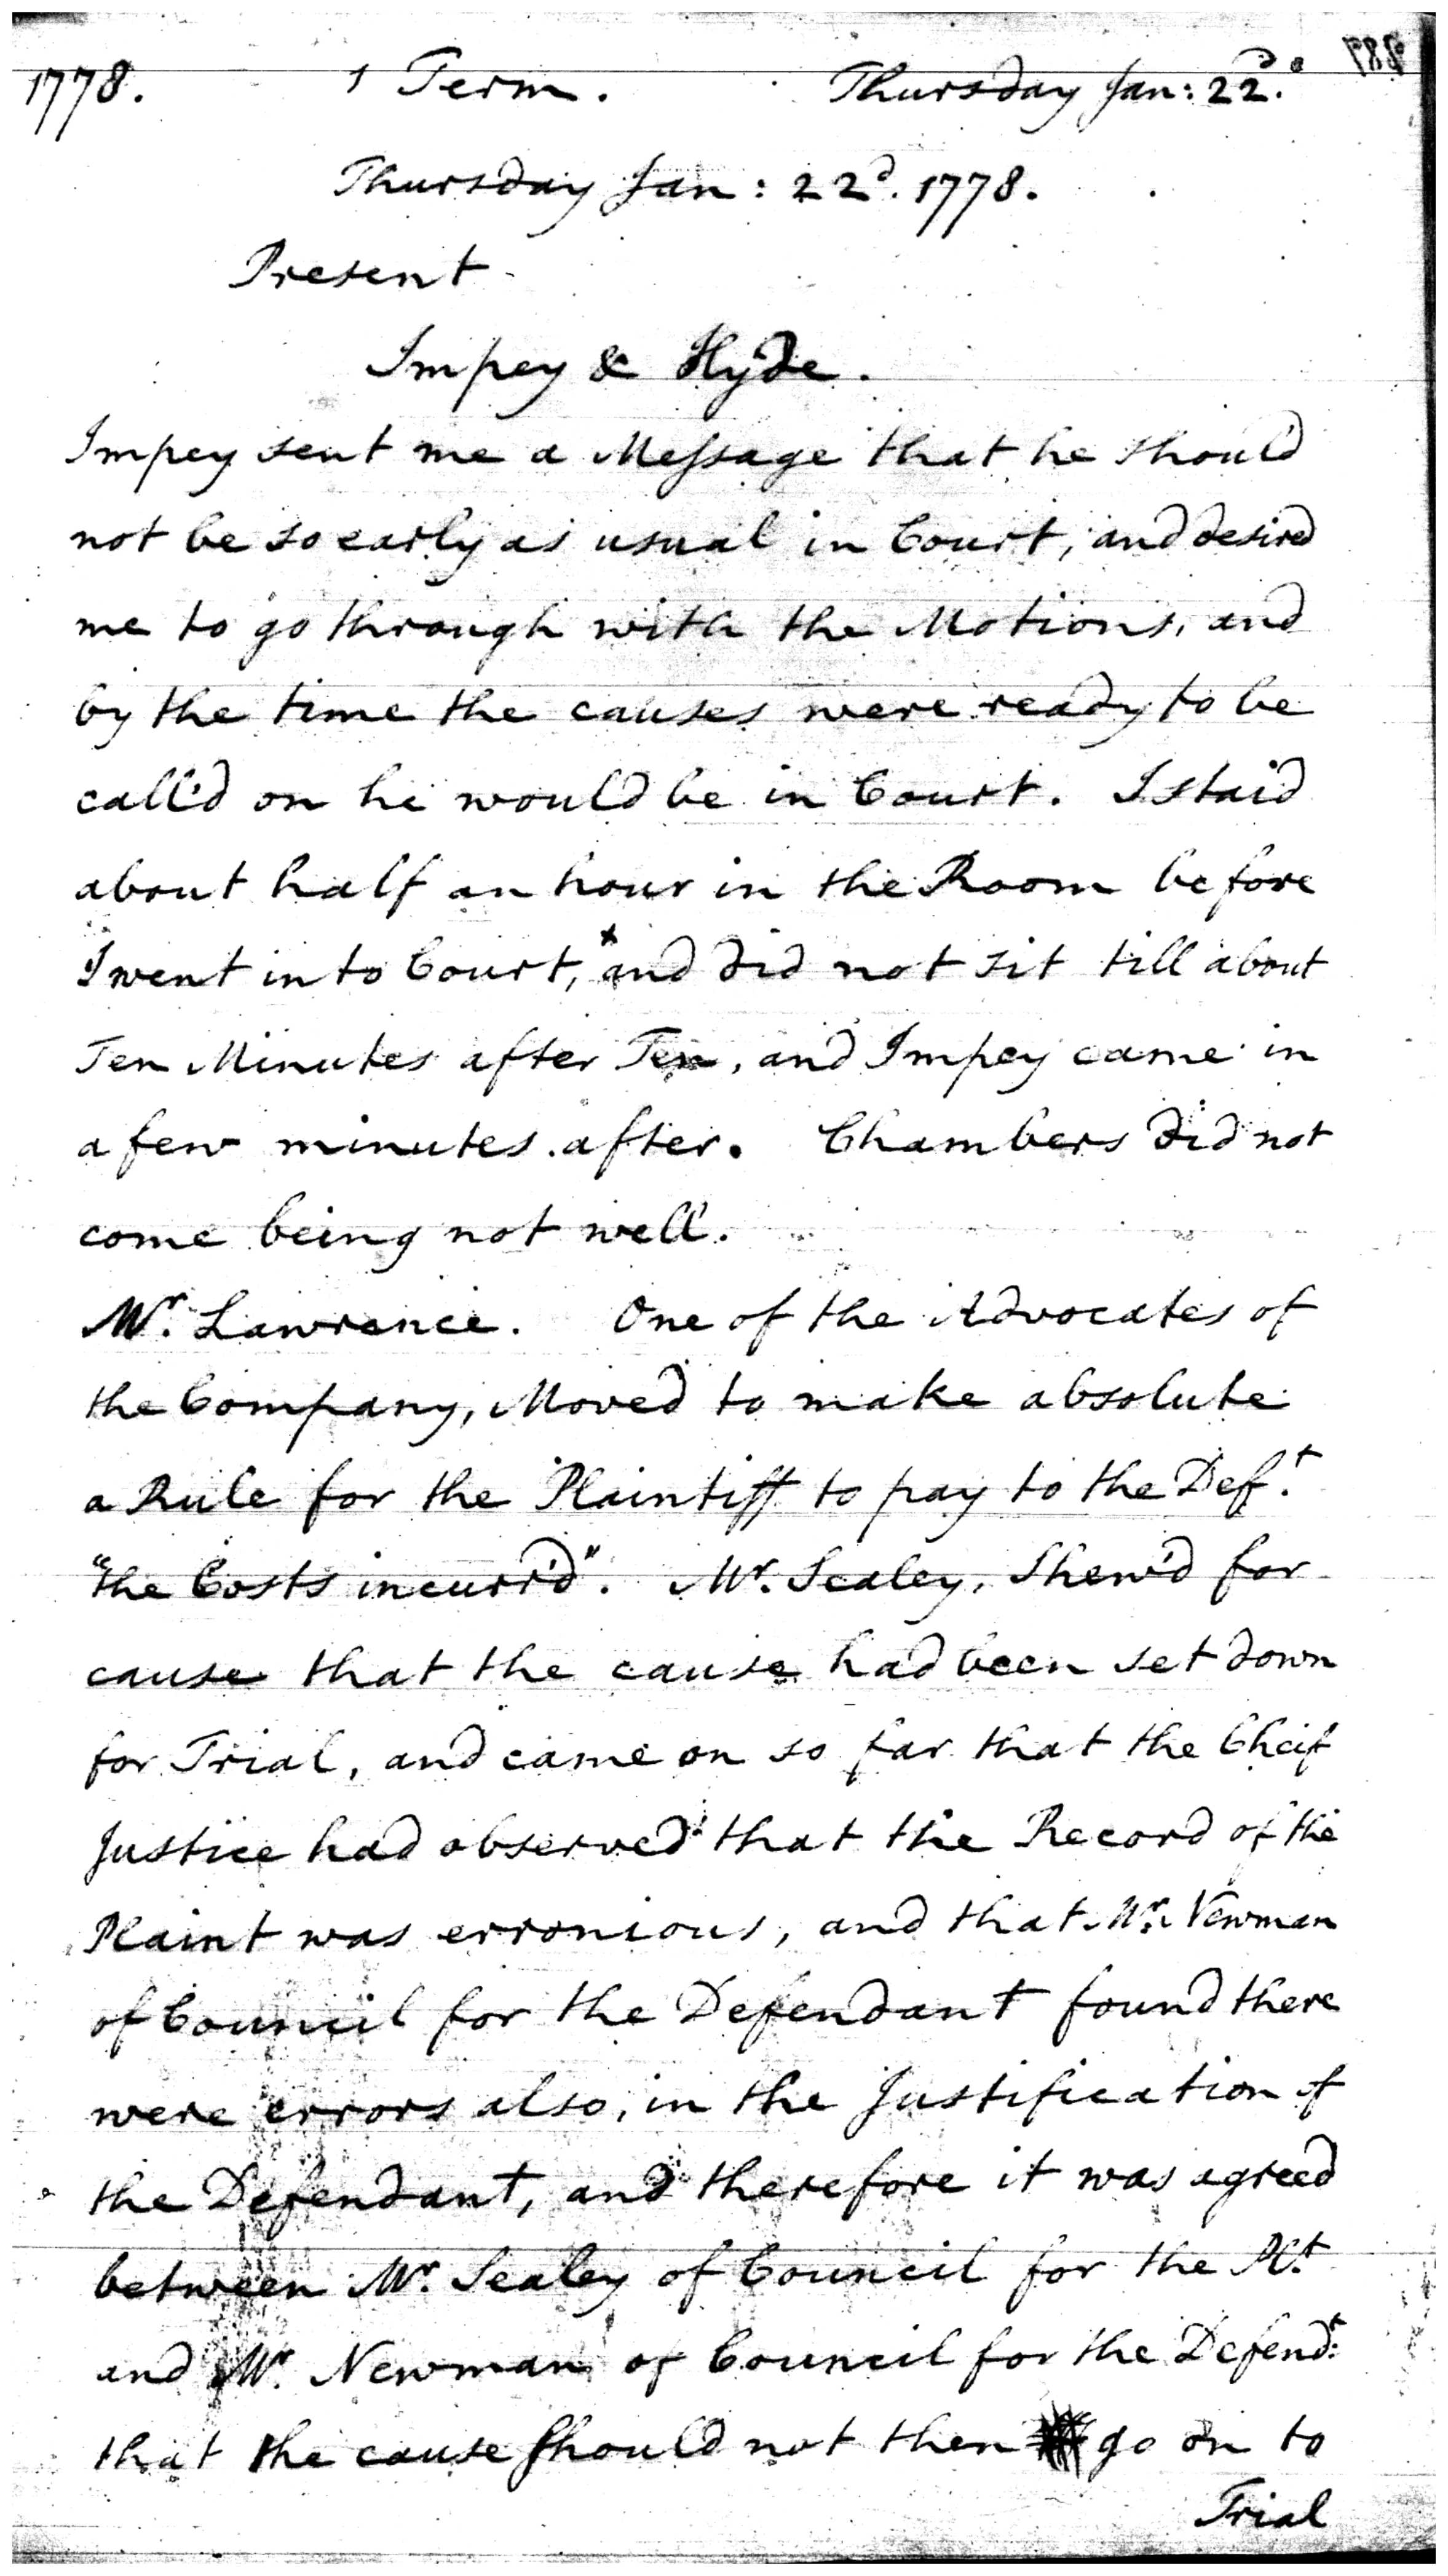 1778. 1 Term. Thursday Jan: 22d.
Thursday Jan: 22d. 1778.
Present
Impey & Hyde.
Impey sent me a Message that he should
not be so early as usual in Court, and desired
me to go through with the Motions, and
by the time the causes were ready to be
call'd on he would be in Court. I staid
about half an hour in the Room before
I went into Court, x and did not sit till about
Ten Minutes after Ten, and Impey came in
a few minutes after. Chambers did not
come being not well.
Mr. Lawrence. One of the Advocates of
the Company, Moved to make absolute
a Rule for the Plaintiff to pay to the Deft.
"the Costs incurr'd". Mr. Sealey, Shew'd for
cause that the cause had been set down
for Trial, and came on so far that the Cheif
Justice had observed that the Record of the
Plaint was erronious, and that Mr. Newman
of Council for the Defendant found there
were errors also, in the Justification of
the Defendant, and therefore it was agreed
between Mr. Sealey of Council for the Plt.
and Mr. Newman of Council for the Defendt:
that the cause should not then go on to
Trial